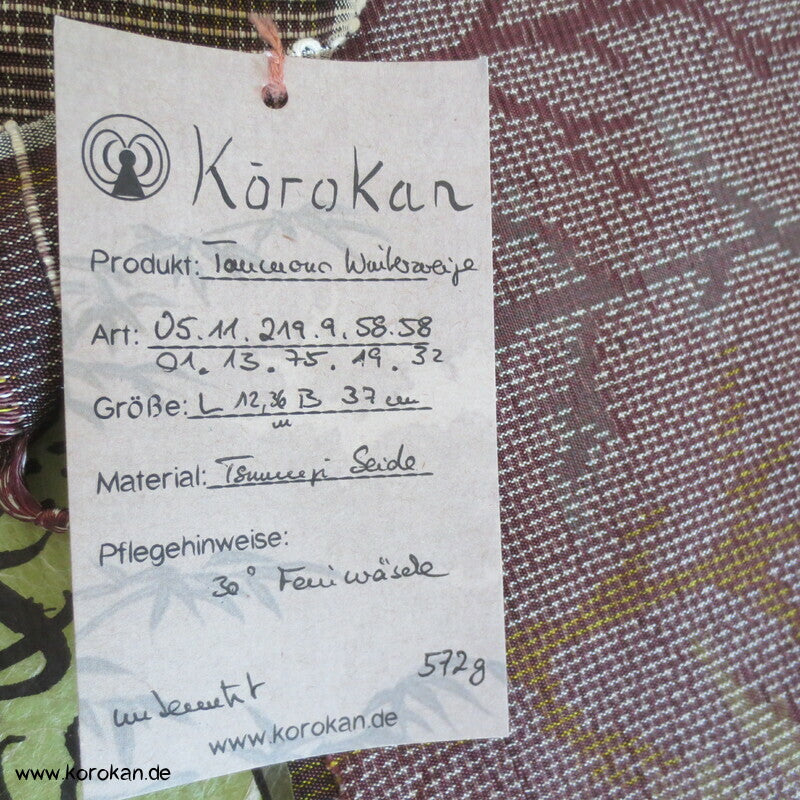 Kōrokan
Produkt: Tanmono Winterzweige
Art: 05.11.219.9.58.58
01.13.75.19.32
Größe: L 12,36 B 37 cm
m
Material: Tsumugi Seide
Pflegehinweise:
30° Feinwäsche
572g
unbenutzt
www.korokan.de
www.korokan.de